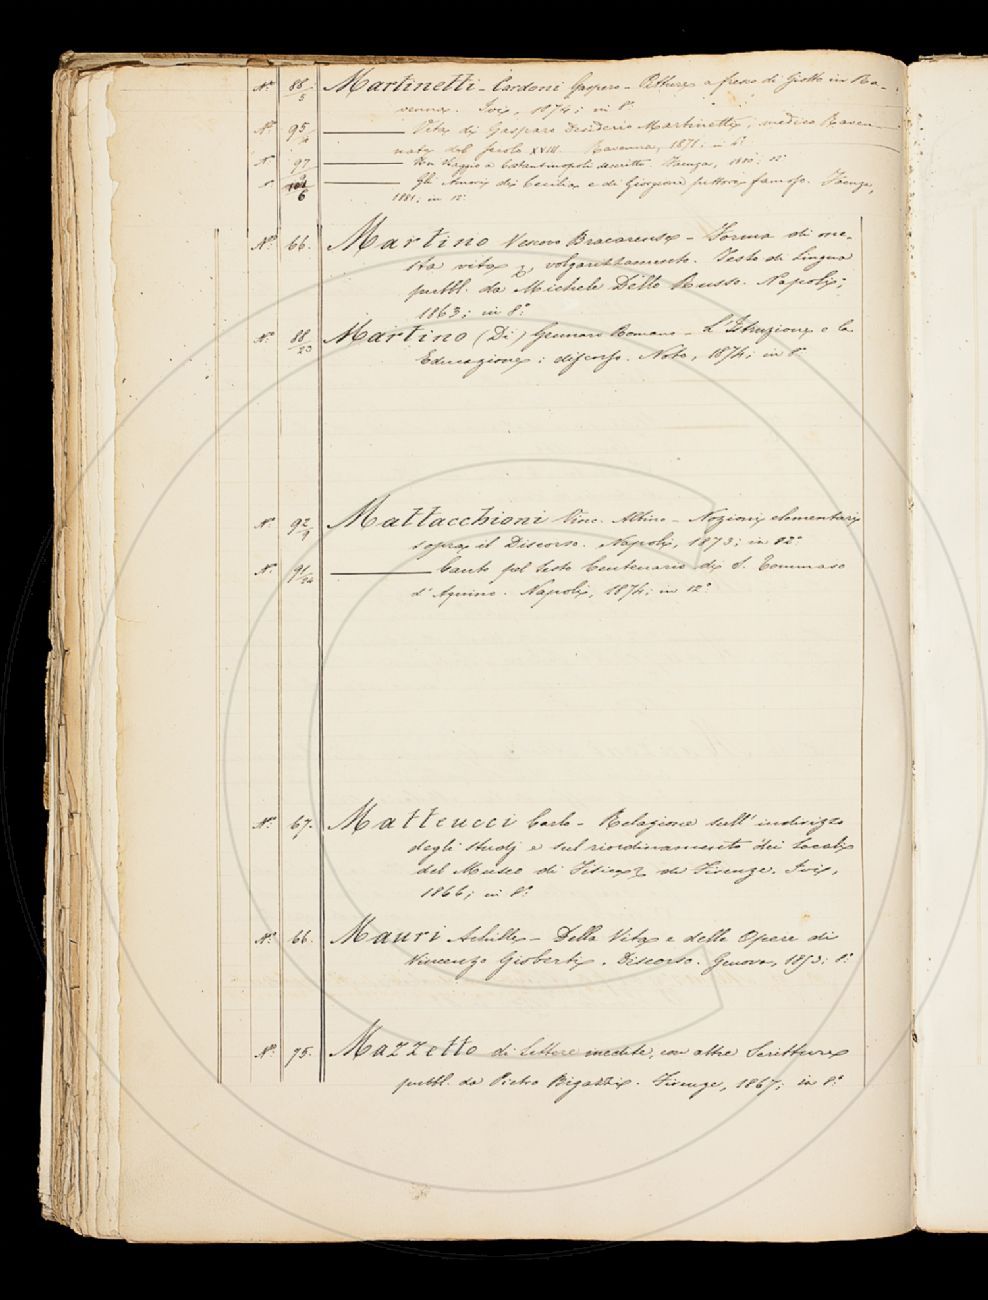 N.° 88/5 Martinetti-Cardoni Gaspare - Pitture a fresco di Giotto in Ra-
venna. Ivi, 1874; in 8.°
N.° 95 ——— Vita di Gaspare Desiderio Martinetti, medico Raven-
nate del secolo XVIII. Ravenna, 1871; in 4.°
N.° 97 ——— Un Viaggio a Costantinopoli descritto. Faenza, 12.°
6 ——— Gli Amori di Cecilia e di Giorgione pittore famoso. Faenza,
1881; in 12.°
N.° 66. Martino Vescovo Bracarense - Forma di one-
sta vita, volgarizzamento. Testo di Lingua
pubbl. da Michele Dello Russo. Napoli,
1863; in 8.°
N.° 88/23 Martino (Di) Gennaro Romano - L'Istruzione e la
Educazione: discorso. Noto, 1874; in 8.°
N.° 92/9 Mattacchioni Vinc. Albino - Nozioni elementari
sopra il Discorso. Napoli, 1873; in 12.°
N.° 91/20 ——— Canto pel Sesto Centenario di S. Tommaso
d'Aquino. Napoli, 1874; in 12.°
N.° 67. Matteucci Carlo - Relazione sull'indirizzo
degli studj e sul riordinamento dei locali
del Museo di Fisica di Firenze. Ivi,
1866; in 8.°
N.° 66. Mauri Achille - Della Vita e delle Opere di
Vincenzo Gioberti. Discorso. Genova, 1853; 8.°
N.° 75. Mazzetto di lettere inedite, con altre Scritture
pubbl. da Pietro Bigazzi. Firenze, 1867; in 8.°